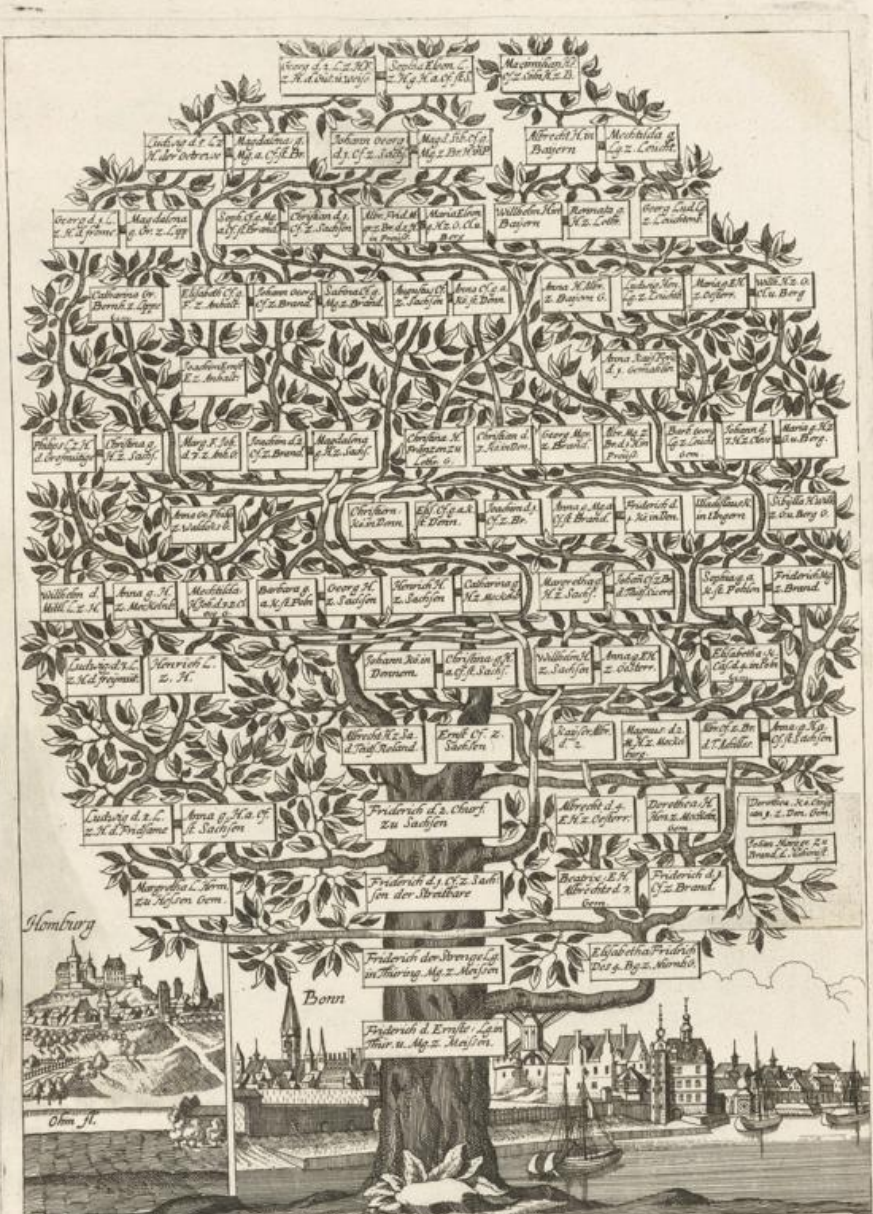 Georg d. 2. L. Z. H.
Sophia Eleon. L.
Maximilian H.
Ludwig d. 5. L. Z.
H. der Getreue
Magdalena g.
Mg. a. Cf. st. Br.
Johann Georg
d. 1. Cf. z. Sachs.
Magd. Sib. Cf. g.
Albrecht H. in
Bayern
Mechtilda g.
Lg. z. Leucht.
Georg d. 1. L.
z. H. d. frome
Magdalena
g. Gr. z. Lipp
Christian d. 1.
Cf. z. Sachsen
Maria Eleon.
Wilhelm H. in
Bayern
Rennata g.
H. z. Lothr.
Georg Lud. Lg.
z. Leuchtenb.
Catharina Gr.
Bernh. z. Lippe
Elisabeth Cf. g.
F. z. Anhalt
Johann Georg
Cf. z. Brand.
Sabina Cf. g.
Mg. z. Brand.
Augustus Cf.
z. Sachsen
Anna Cf. g. a.
Kö. st. Denn.
Anna H. Albr.
z. Baiern G.
Ludwig Hen.
Lg. z. Leucht.
Maria g. E. H.
z. Oesterr.
Wilh. H. z. G.
Cl. u. Berg
Joachim Ernst
F. z. Anhalt
d. 1. Gemahlin
Philips L. z. H.
d. Grosmütige
Christina g.
H. z. Sachs.
Marg. F. Joh.
Joachim d. 2.
Cf. z. Brand.
Magdalena
g. H. z. Sachs.
Christina H.
Frantzen zu
Lothr. G.
Christian d.
Georg Mgr.
z. Brand.
Albr. Mg. z.
Preuss.
Barb. Georg
Lg. z. Leucht
Gem.
Johann d.
Maria g. H. z.
G. u. Berg.
z. Waldek G.
Christiern
Kö. in Denn.
Elis. Cf. g. a. k.
st. Denn.
Joachim d. 1.
Cf. z. Br.
Anna g. Mg. a
Cf. st. Brand.
Friderich d.
1. Kö. in Den.
Uladislaus K.
in Ungern
Sibylla H. Wilh.
z. G. u. Berg G.
Wilhelm d.
Mittl. L. z. H.
Anna g. H.
z. Mecklnb.
Mechtilda
Barbara g.
a. K. st. Pohl.
Georg H.
z. Sachsen
Henrich H.
z. Sachsen
Catharina g.
H. z. Meckelb.
Margretha g.
H. z. Sachs.
Johañ Cf. z. Br.
Sophia g. a.
K. st. Pohlen
Friderich Mg.
z. Brand.
Ludwig d. 3. L.
z. H. d. freymüt.
Henrich L.
z. H.
Johann Kö. in
Dennem.
Christina g. H.
a. Cf. st. Sachs.
Wilhelm H.
z. Sachsen
Anna g. E. H.
z. Oesterr.
Elisabetha K.
Cas. d. 4. in Poln
Gem.
Albrecht H. z. Sa.
d. Teuts. Roland.
Ernst Cf. z.
Sachsen
Kayser Albr.
d. 2.
Magnus d. 2.
H. z. Meckel
burg.
Albr. Cf. z. Br.
d. T. Achilles
Anna g. H. a.
Cf. st. Sachsen
Ludwig d. 2. L.
z. H. d. Fridsame
Anna g. H. a. Cf.
st. Sachsen
Friderich d. 2. Churf.
zu Sachsen
Albrecht d. 4.
E. H. z. Oesterr.
Dorothea H.
Hen. z. Meckeln.
Gem.
Margretha L. Herm.
zu Hessen Gem.
Friderich d. 1. Cf. z. Sach=
sen der Streitbare
Beatrix E. H.
Albrechts d. 3.
Gem.
Friderich d. 1
Cf. z. Brand.
Homburg
Friderich der Strenge Lg.
in Thüring. Mg. z. Meissen
Elisabetha Fridrich
Des 4. Bg. z. Nürnb. G.
Bonn
Friderich d. Ernste Lg. in
Thür. u. Mg. z. Meissen.
Ohm fl.